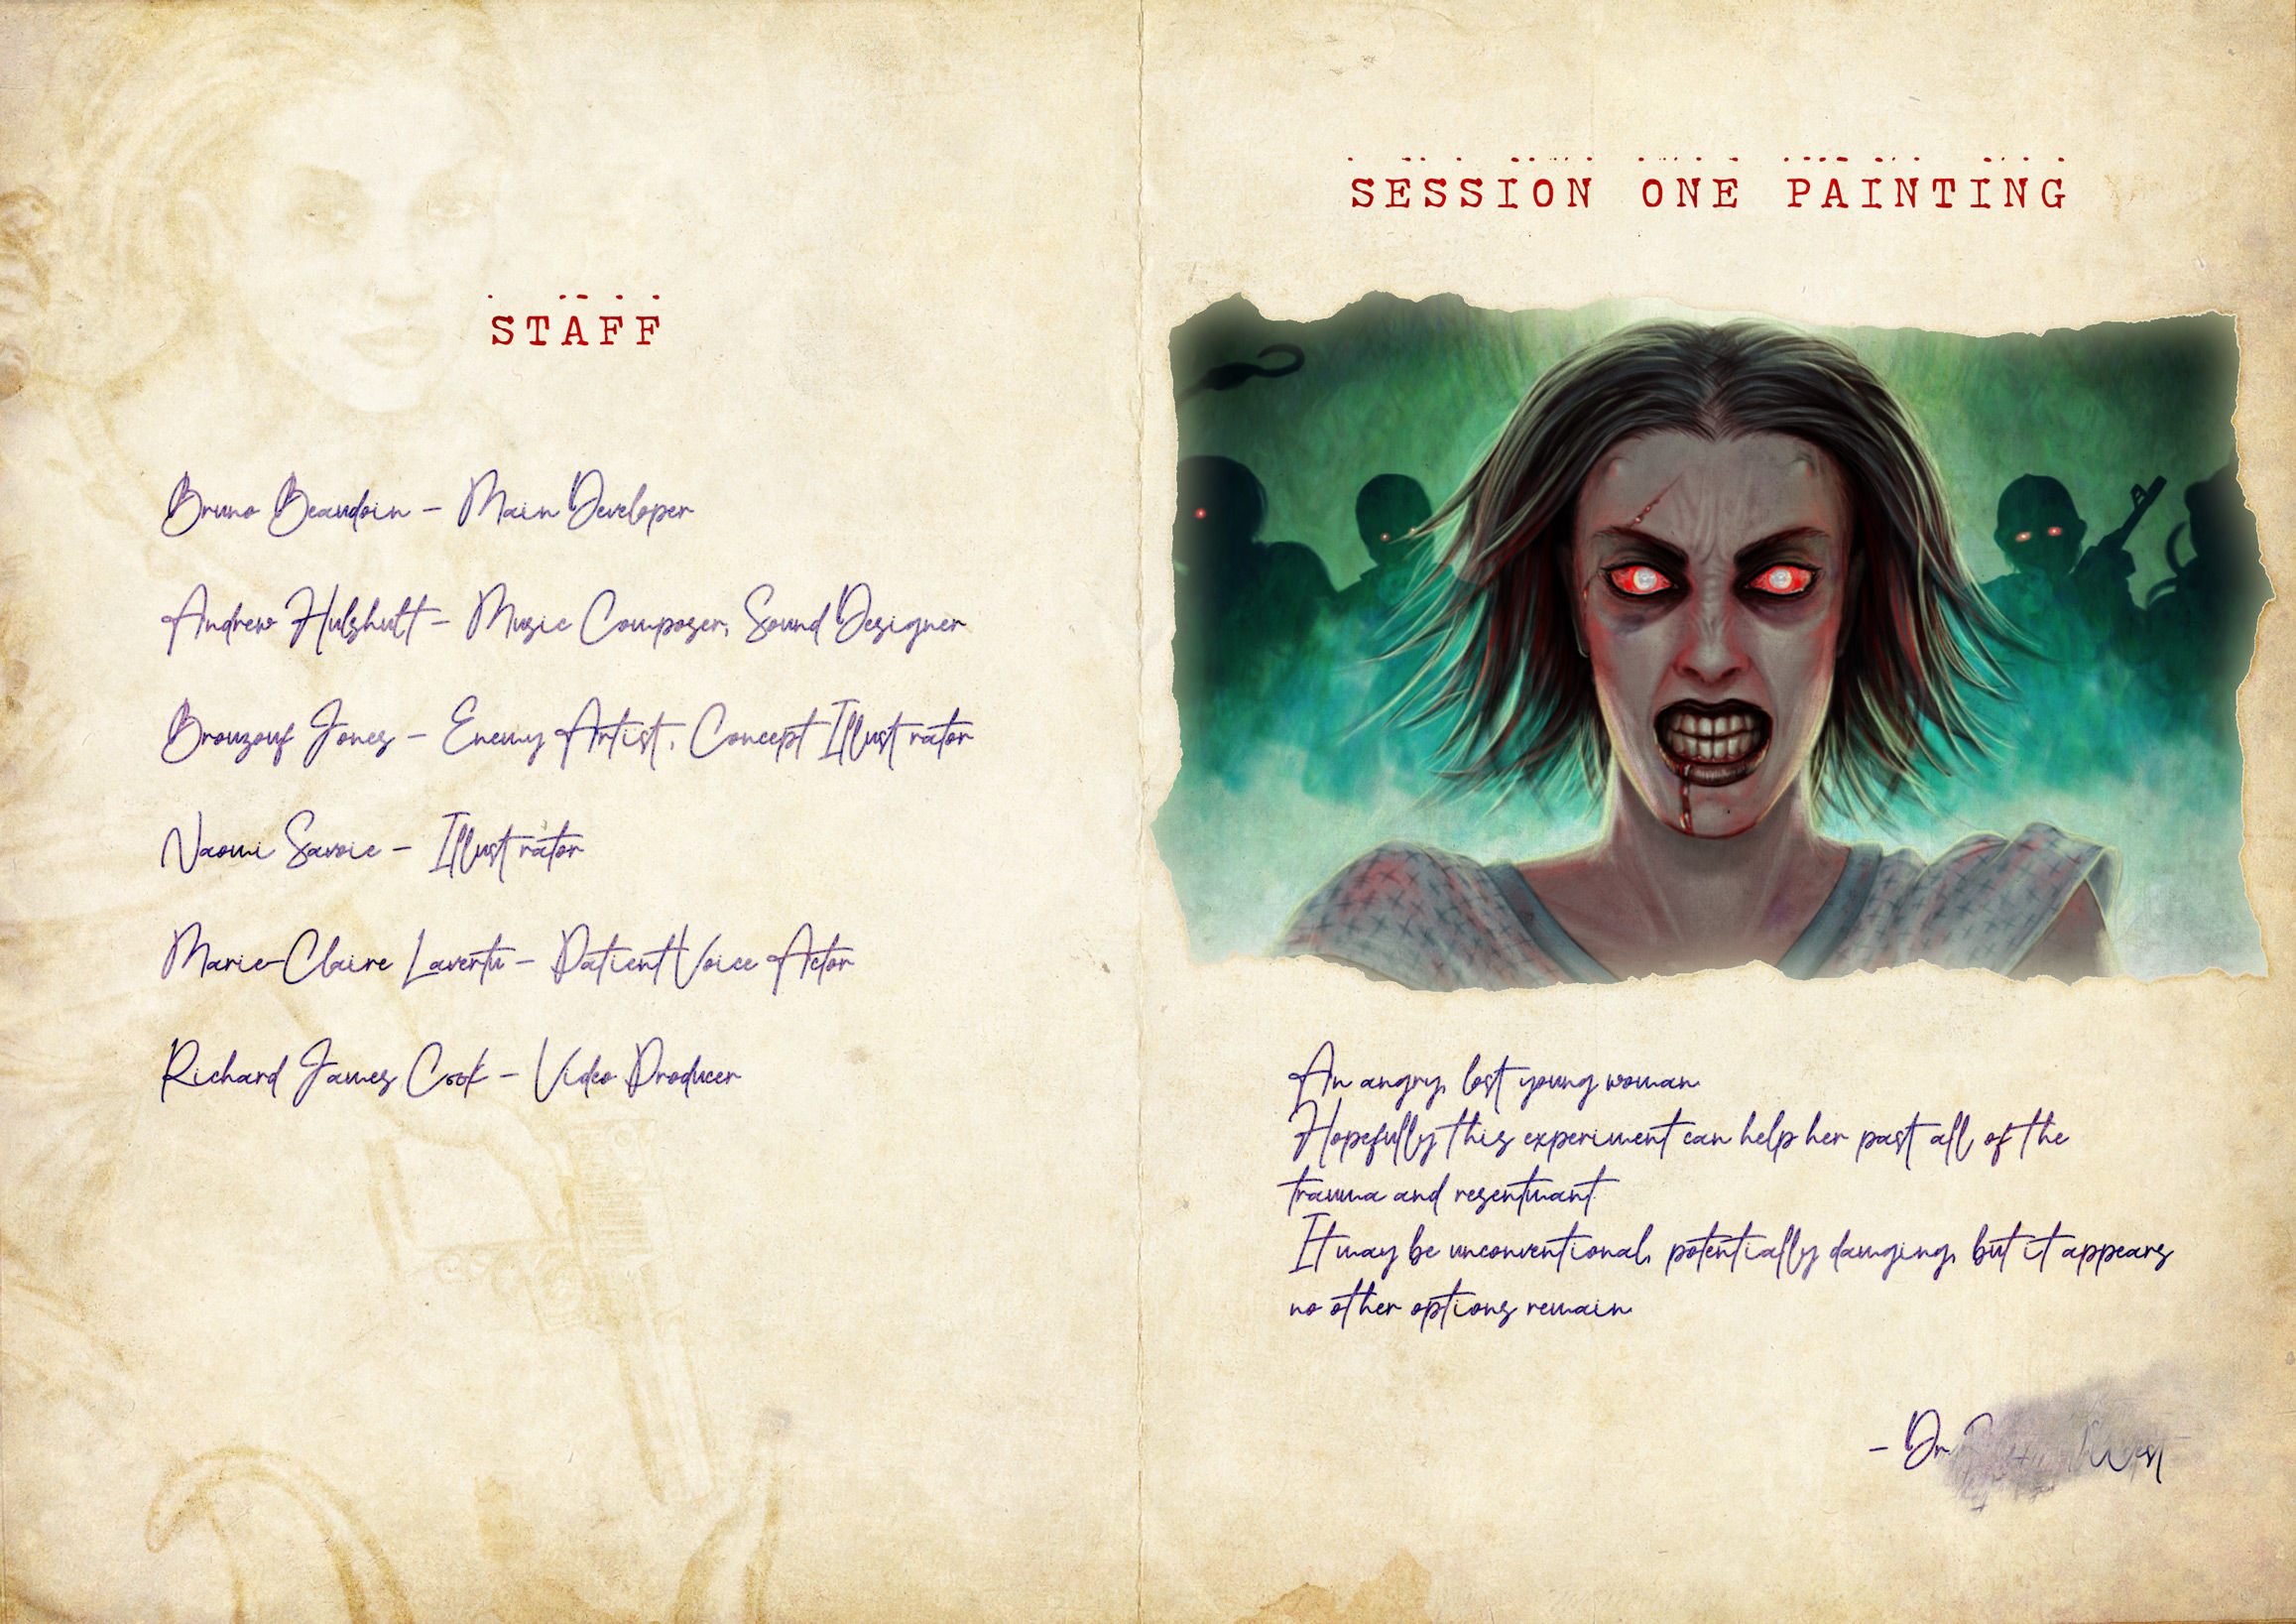 STAFF
Bruno Beaudoin – Main Developer
Andrew Hulshult – Music Composer, Sound Designer
Brouzouf Jones – Enemy Artist, Concept Illustrator
Naomi Savoie – Illustrator
Marie-Claire Lavertu – Patient Voice Actor
Richard James Cook – Video Producer
SESSION ONE PAINTING
An angry, lost young woman.
Hopefully this experiment can help her past all of the
trauma and resentmant.
It may be unconventional, potentially damging, but it appears
no other options remain.
– Dr